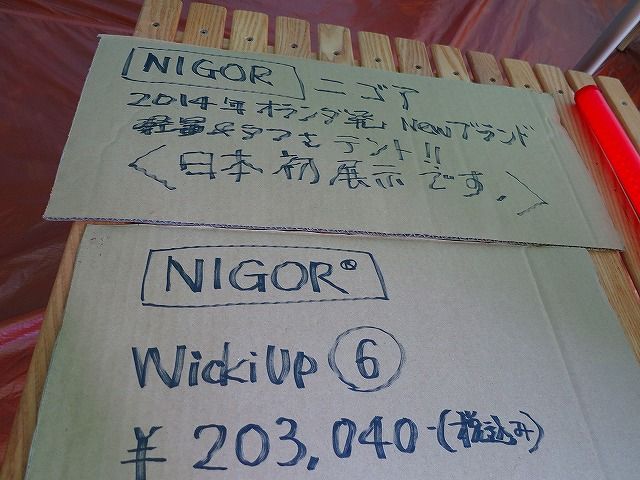 NIGOR ニゴア
2014年オランダ発 Newブランド
軽量&タフなテント!!
<日本初展示です.>
NIGOR®
WickiUp ⑥
¥203,040-(税込み)